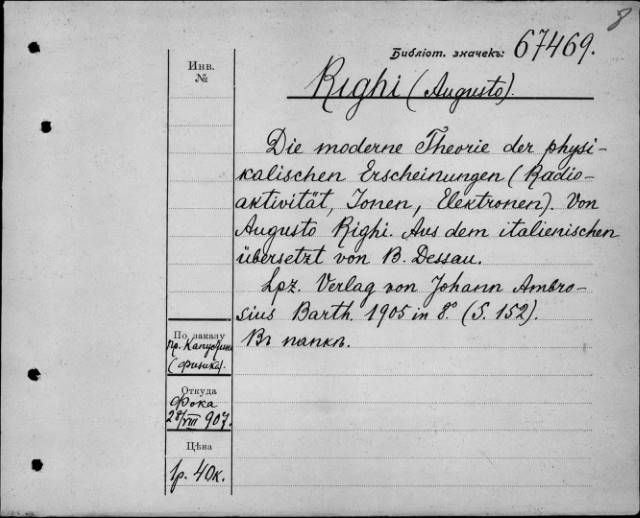 8
Библіот. значекъ: 67469.
Инв.
№
Righi (Augusto).
Die moderne Theorie der physi-
kalischen Erscheinungen (Radio-
aktivität, Ionen, Elektronen). Von
Augusto Righi. Aus dem italienischen
übersetzt von B. Dessau.
Lpz. Verlag von Johann Ambro-
sius Barth. 1905 in 8º (S. 152).
Въ папкѣ.
По заказу
пр. Капустина
(физика).
Откуда
Фока
28/VIII 907.
Цѣна
1р. 40к.